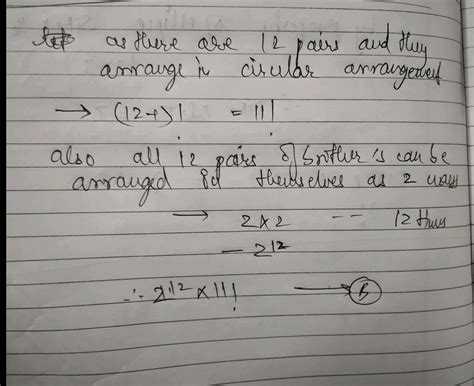 as there are 12 pairs and they
arrange in circular arrangement
→ (12-1)! = 11!
also all 12 pairs of brother's can be
arranged themselves as 2 ways
→ 2×2 -- 12 times
- 2^12
∴ 2^12 × 11! → B